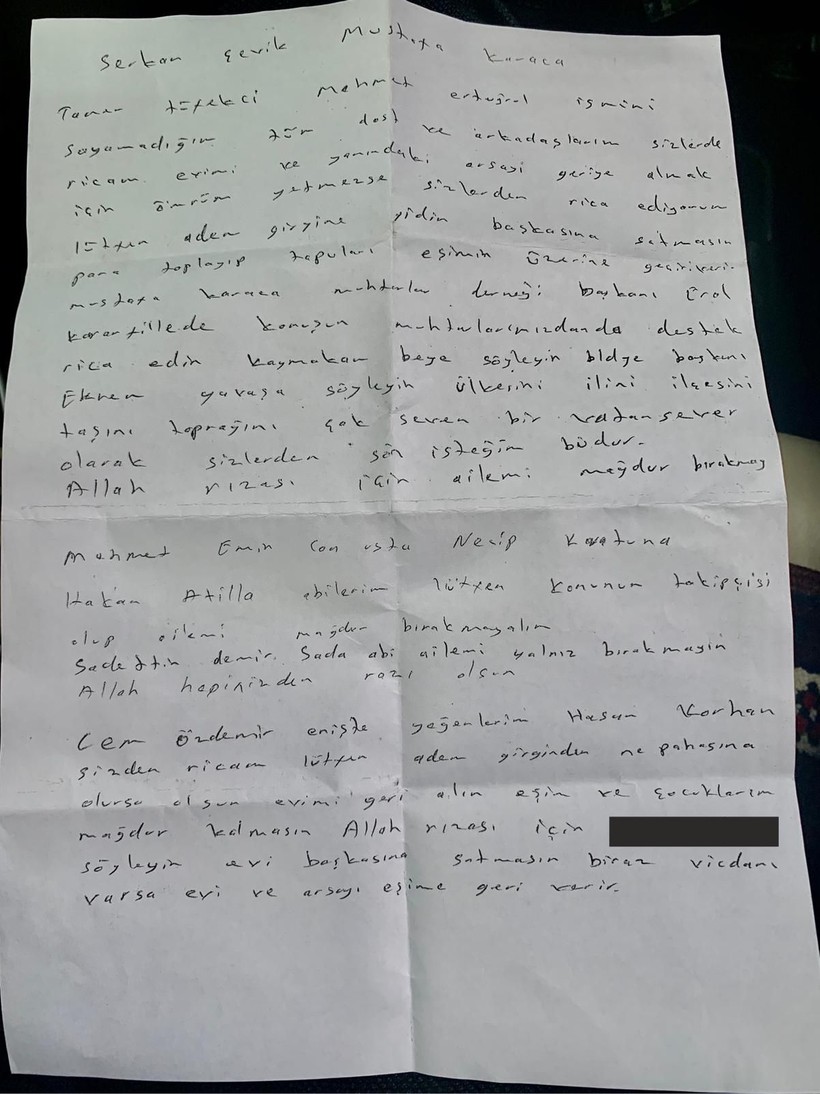 Serkan Çevik Mustafa Karaca
Taner tüfekci Mehmet ertuğrul ismini
sayamadığım tüm dost ve arkadaşlarım sizlerde
ricam evimi ve yanındaki arsayi geriye almak
için ömrüm yetmezse sizlerden rica ediyorum
lütfen adem girgine gidin başkasına satmasın
para toplayıp tapuları eşimin üzerine geçiriverin
mustafa karaca muhtarlar derneği başkanı Erol
karanfillede konuşun muhtarlarımızdanda destek
rica edin kaymakam beye söyleyin bldye başkanı
Ekrem yavaşa söyleyin ülkesini ilini ilçesini
taşını toprağını çok seven bir vatansever
olarak sizlerden son isteğim budur.
Allah rızası için ailemi mağdur bırakmay
Mehmet Emin Can usta Necip Kavatuna
Hakan Atilla abilerim lütfen konunun takipçisi
olup ailemi mağdur bırakmayalım
Sadettin demir. Sada abi ailemi yalnız bırakmayın
Allah hepinizden razı olsun
Cem Özdemir enişte yeğenlerim Hasan Korhan
sizden ricam lütfen adem girginden ne pahasına
olursa olsun evimi geri alın eşim ve çocuklarım
mağdur kalmasın Allah rızası için
söyleyin evi başkasına satmasın biraz vicdanı
varsa evi ve arsayı eşime geri verir.